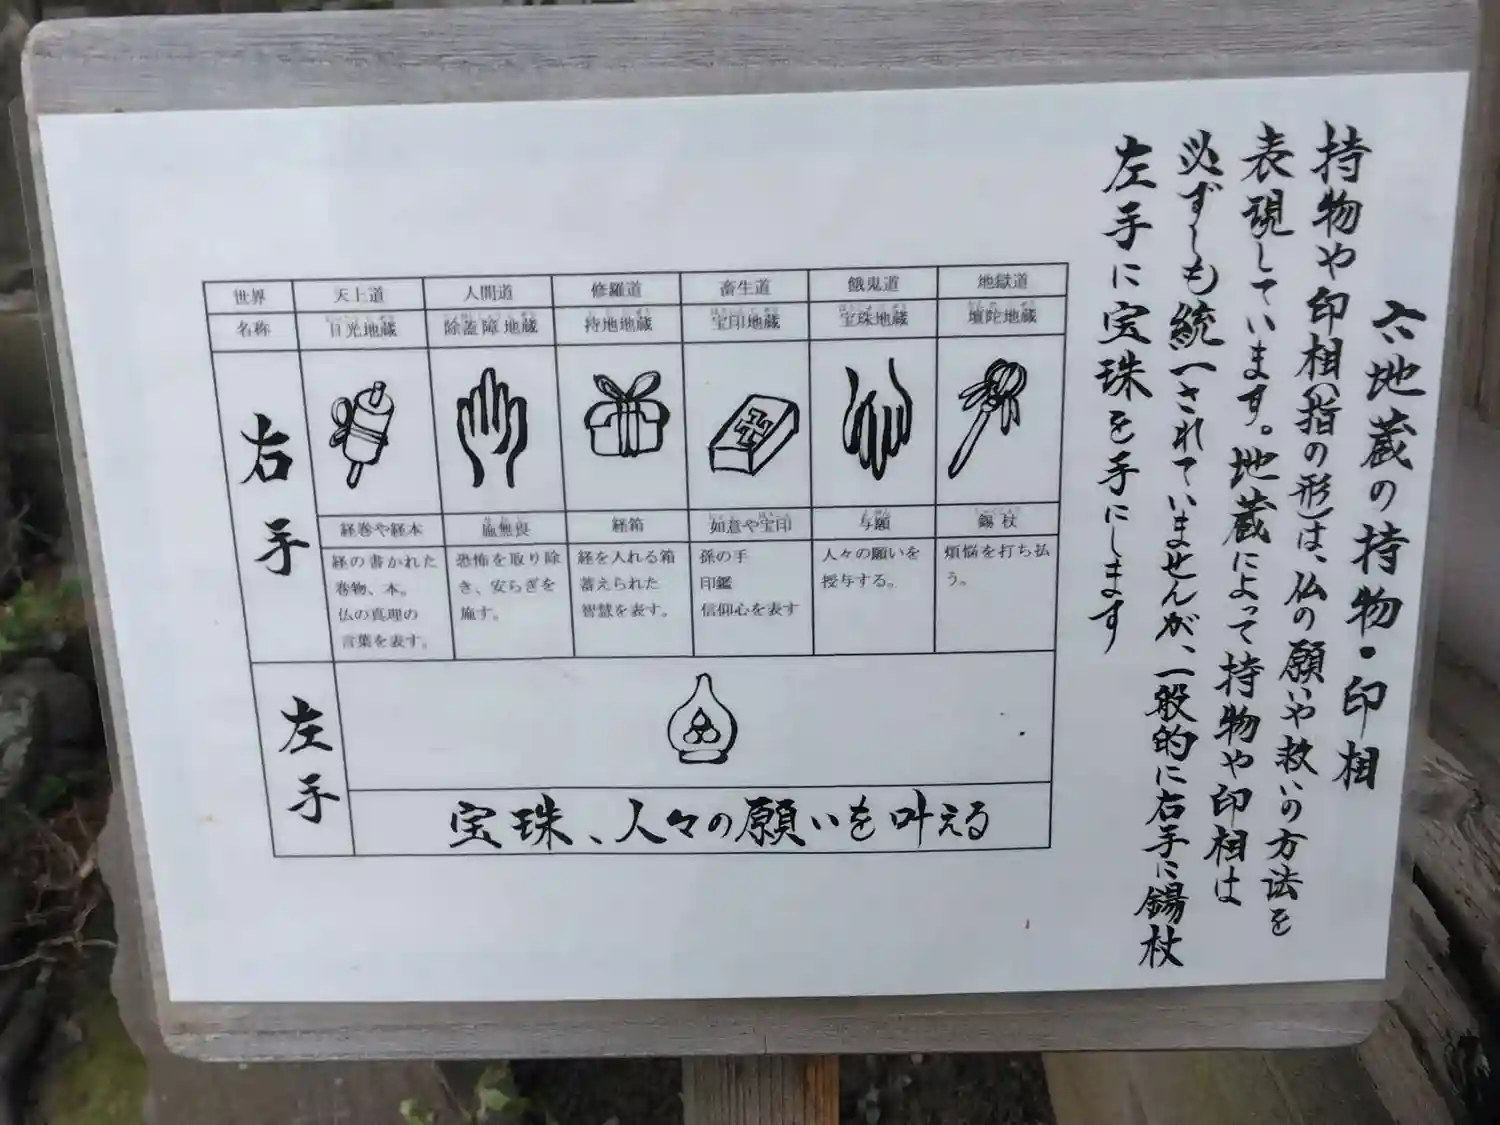 六地蔵の持物・印相
持物や印相(指の形)は、仏の願いや救いの方法を
表現しています。地蔵によって持物や印相は
必ずしも統一されていませんが、一般的に右手に錫杖
左手に宝珠を手にします
世界 天上道 人間道 修羅道 畜生道 餓鬼道 地獄道
名称 日光地蔵 除蓋障地蔵 持地地蔵 宝印地蔵 宝珠地蔵 壇陀地蔵
右手
経巻や経本 施無畏 経箱 如意や宝印 与願 錫杖
経の書かれた
巻物、本。
仏の真理の
言葉を表す。
恐怖を取り除
き、安らぎを
施す。
経を入れる箱
蓄えられた
智慧を表す。
孫の手
印鑑
信仰心を表す
人々の願いを
授与する。
煩悩を打ち払
う。
左手
宝珠、人々の願いを叶える